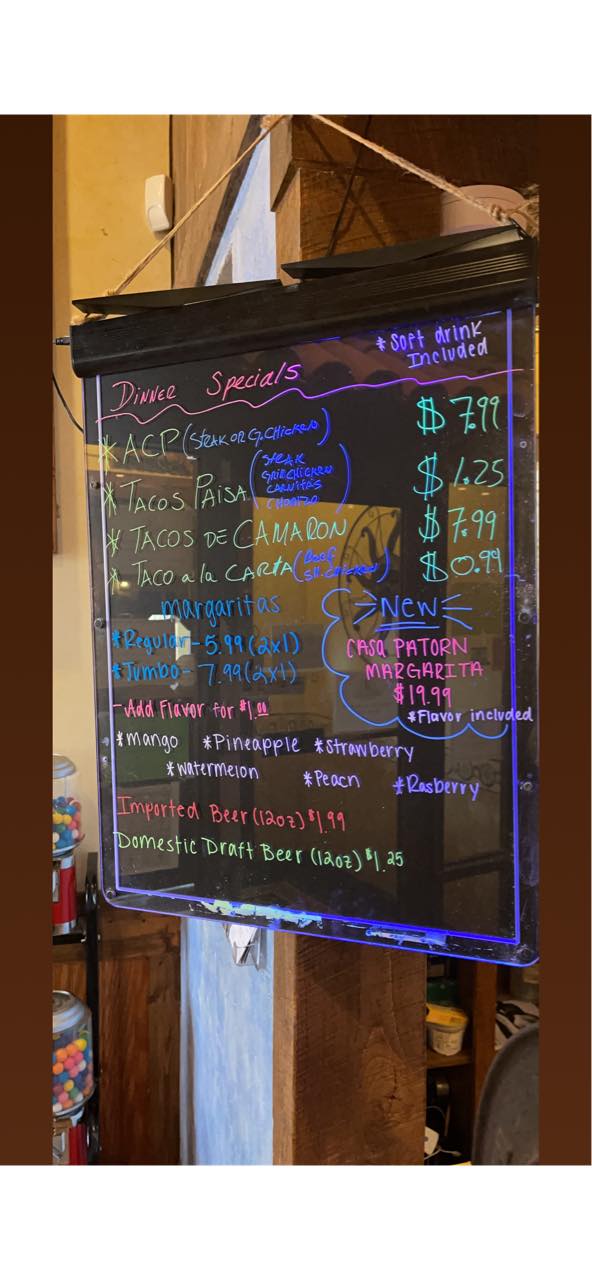 * Soft drink
Included
Dinner Specials
* ACP (Steak or G.Chicken) $7.99
* Tacos Paisa (Steak Grill Chicken Carnitas Chorizo) $1.25
* Tacos de Camaron $7.99
* Taco a la Carta (Beef Sh.Chicken) $0.99
margaritas
*Regular - 5.99 (2x1)
*Jumbo - 7.99 (2x1)
New
CASA PATORN
MARGARITA
$19.99
*Flavor included
- Add Flavor for $1.00
*mango *Pineapple *strawberry
*watermelon *Peach *Rasberry
Imported Beer (12oz) $1.99
Domestic Draft Beer (12oz) $1.25